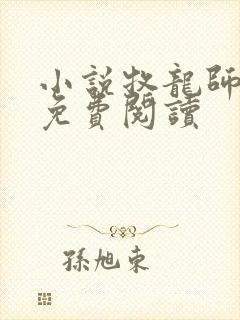 小說牧龍師
免費閱讀
孫旭東